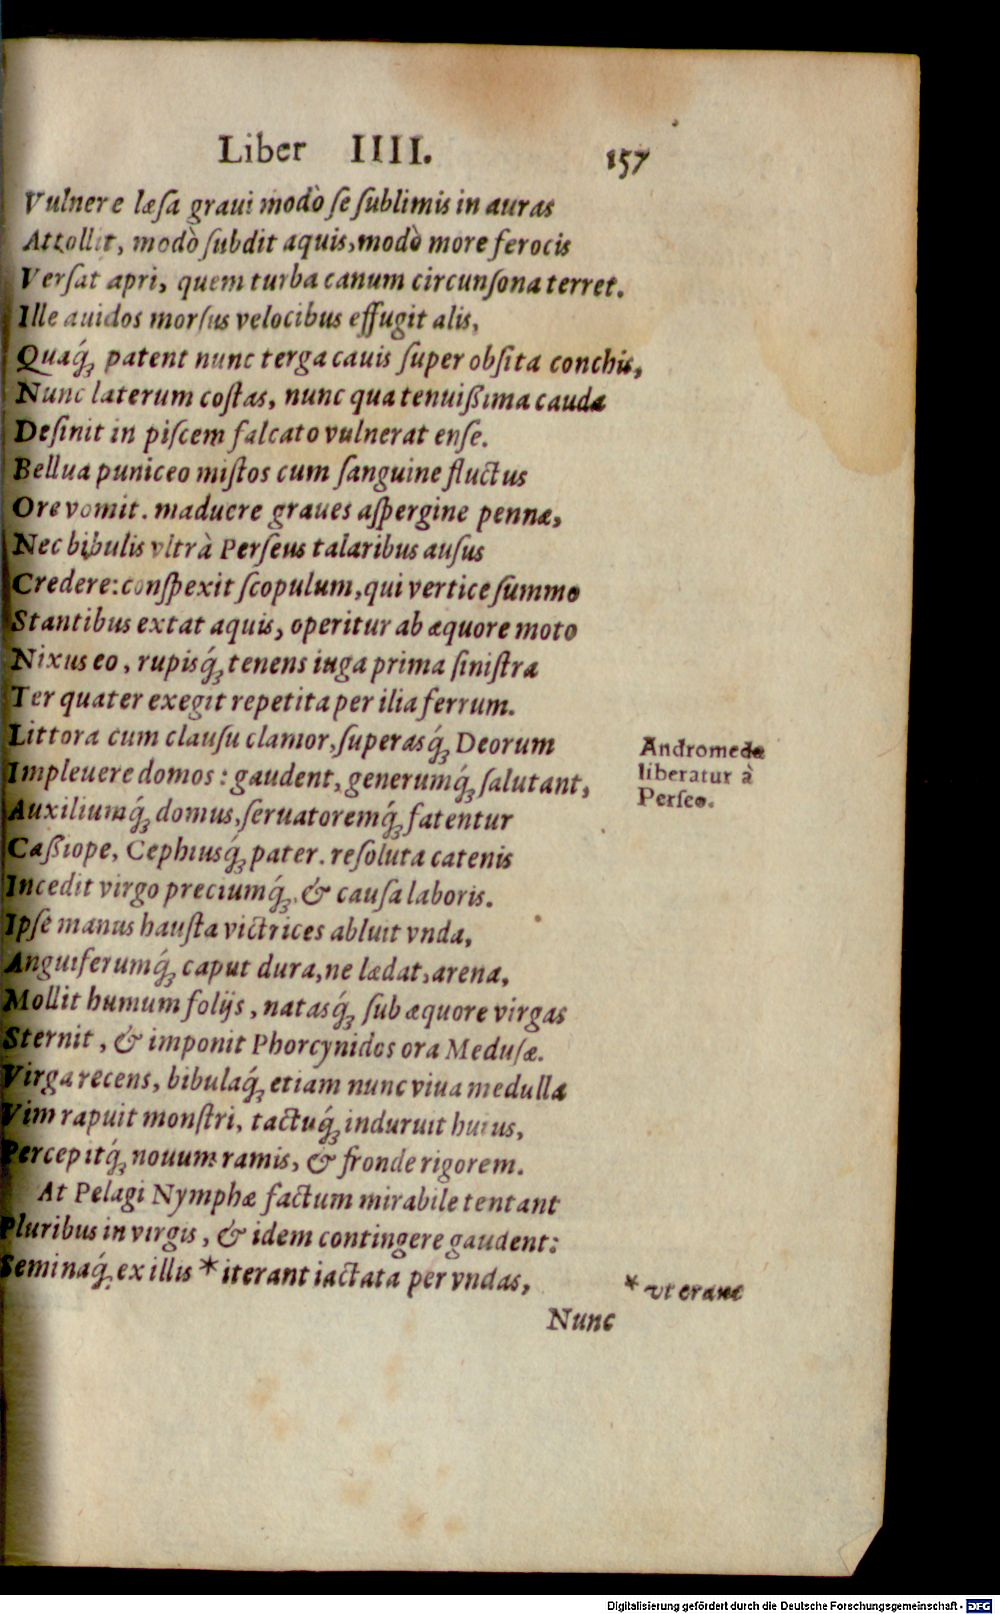 Liber IIII. 157
Vulnere læſa graui modò ſe ſublimis in auras
Attollit, modò ſubdit aquis, modò more ferocis
Verſat apri, quem turba canum circunſona terret.
Ille auidos morſus velocibus effugit alis,
Quaq́ꝫ patent nunc terga cauis ſuper obſita conchis,
Nunc laterum coſtas, nunc qua tenuißima cauda
Deſinit in piſcem falcato vulnerat enſe.
Bellua puniceo miſtos cum ſanguine fluctus
Ore vomit. maduere graues aſpergine pennæ,
Nec bibulis vltrà Perſeus talaribus auſus
Credere: conſpexit ſcopulum, qui vertice ſummo
Stantibus extat aquis, operitur ab æquore moto
Nixus eo, rupisq́ꝫ tenens iuga prima ſiniſtra
Ter quater exegit repetita per ilia ferrum.
Littora cum clauſu clamor, ſuperasq́ꝫ Deorum
Impleuere domos: gaudent, generumq́ꝫ ſalutant,
Auxiliumq́ꝫ domus, ſeruatoremq́ꝫ fatentur
Caßiope, Cephiusq́ꝫ pater. reſoluta catenis
Incedit virgo preciumq́ꝫ, & cauſa laboris.
Ipſe manus hauſta victrices abluit vnda,
Anguiferumq́ꝫ caput dura, ne lædat, arena,
Mollit humum folijs, natasq́ꝫ ſub æquore virgas
Sternit, & imponit Phorcynidos ora Meduſæ.
Virga recens, bibulaq́ꝫ etiam nunc viua medulla
Vim rapuit monſtri, tactuq́ꝫ induruit huius,
Percepitq́ꝫ nouum ramis, & fronde rigorem.
At Pelagi Nymphæ factum mirabile tentant
Pluribus in virgis, & idem contingere gaudent:
Seminaq́ꝫ ex illis * iterant iactata per vndas,
Nunc
Andromeda
liberatur à
Perſeo.
* vt erant
Digitalisierung gefördert durch die Deutsche Forschungsgemeinschaft - DFG